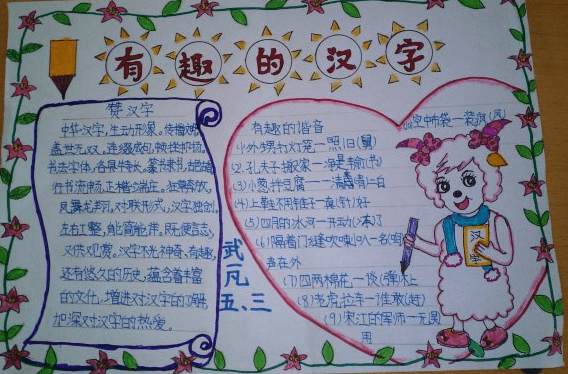 有趣的汉字
赞汉字
中华汉字,生动形象。传播文明,
盖世无双。连缀成句,顿挫抑扬。
书法字体,各具特长。篆书隶书,古色古香。
行书流畅,正楷端庄。狂草奔放,
凤舞龙翔。对联形式,汉字独创。
左右工整,能简能详。既便言志,
又供观赏。汉字不光神奇、有趣,
还有悠久的历史,蕴含着丰富
的文化,增进对汉字的了解,
加深对汉字的热爱。
武一凡
五、三
有趣的谐音
(1)外甥打灯笼—照旧(舅)
(2)孔夫子搬家—净是输(书)
(3)小葱拌豆腐—一清二白
(4)上鞋不用锥子—真(针)好
(5)四月的冰河—开动(冻)了
(6)隔着门缝吹喇叭—名(鸣)
声在外
(7)四两棉花—谈(弹)不上
(8)老虎拉车—谁敢(赶)
(9)宋江的军师—无(吴)
用
(10)空中布袋—装疯(风)
汉字